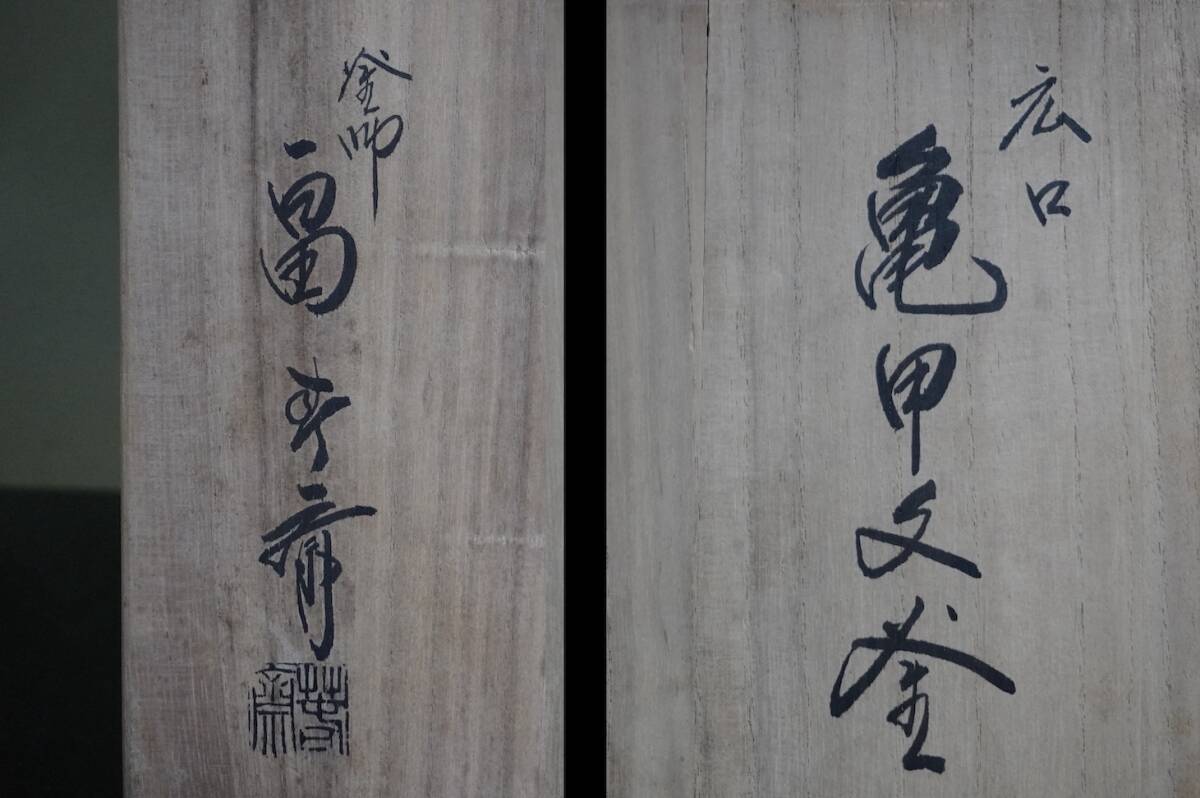 広口
亀甲文釜
釜師
畠春斎